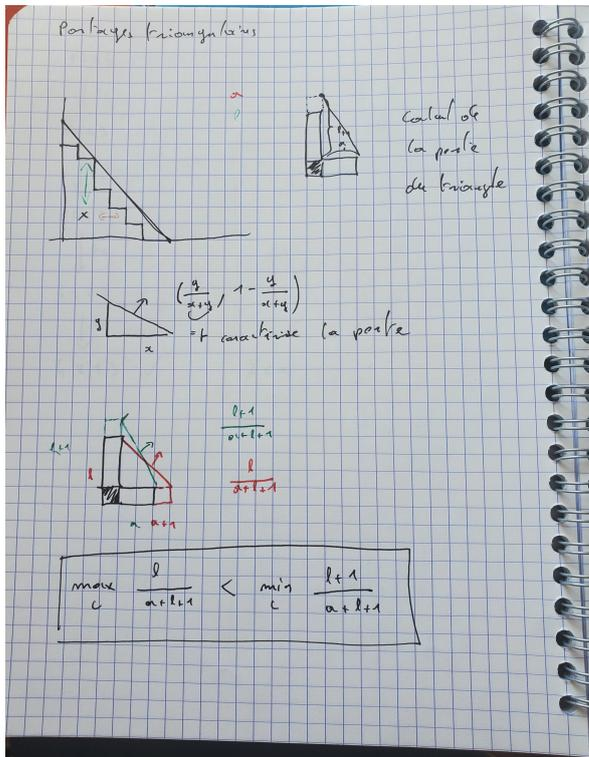 Partages triangulaires
a
l
l+1
a
calcul de
la pente
du triangle
x
(y/(x+y), 1 - y/(x+y))
y
=t caractérise la pente
x
l+1
(l+1)/(a+l+1)
l
l/(a+l+1)
a a+1
max_c l/(a+l+1) < min_c (l+1)/(a+l+1)